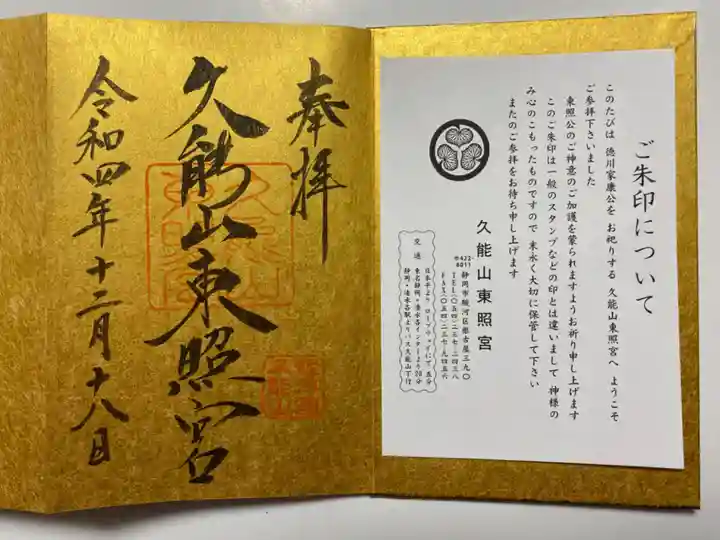 ご朱印について
このたびは 徳川家康公を お祀りする 久能山東照宮へ ようこそ
ご参拝下さいました
東照公のご神意のご加護を蒙られますようお祈り申し上げます
このご朱印は一般のスタンプなどの印とは違いまして 神様の
み心のこもったものですので 末永く大切に保管して下さい
またのご参拝をお待ち申し上げます
久能山東照宮
〒422-8011 静岡市駿河区根古屋三九〇
TEL(〇五四)二三七-二四三八
FAX(〇五四)二三七-九四五六
交通
日本平より ロープウェイにて 五分
東名静岡・清水各インターより20分
静岡・清水各駅よりバス久能山下行
奉拝
久能山東照宮
令和四年十二月十八日